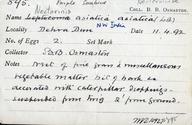 595. Purple Sunbird
COLL. B. B. OSMASTON.
Name Leptocoma asiatica asiatica (Lath.)
NW India
Locality Dehra Dun 11.4.92
No. of Eggs 2. Set Mark
Collector B.B. Osmaston.
Notes Nest of fine grass & miscellaneous
vegetable matter bits of bark &c
decorated with caterpillar droppings.
suspended from twig 2' from ground.